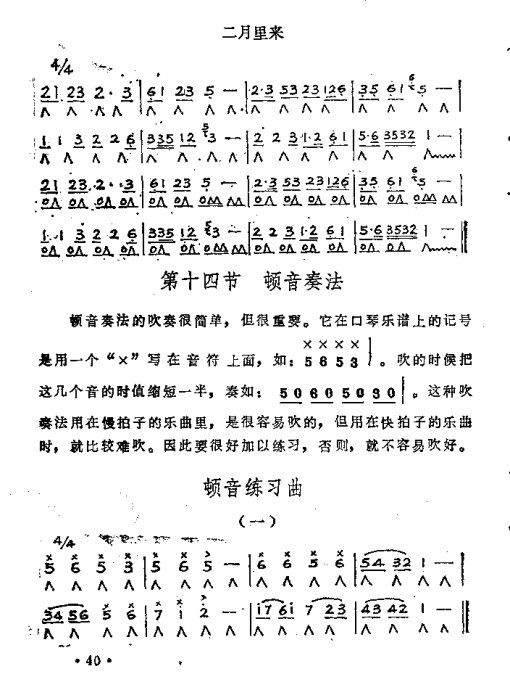 二月里来
4/4
21 23 2· 3 | 61 23 5 — | 2·3 53 23 126 | 35 61 5 — |
1·1 3 2 2 6 | 335 1 2 3 — | 2 2 3·2 61 | 5·6 3532 1 — |
21 23 2· 3 | 61 23 5 — | 2·3 53 23 126 | 35 61 5 — |
1·1 3 2 2 6 | 335 12 3 — | 2 2 3 1·2 61 | 5·6 3532 1 — ‖
第十四节 顿音奏法
顿音奏法的吹奏很简单，但很重要。它在口琴乐谱上的记号
是用一个“×”写在音符上面，如：5 6 5 3 |。吹的时候把
这几个音的时值缩短一半，奏如：50 60 50 30 |。这种吹
奏法用在慢拍子的乐曲里，是很容易吹的，但用在快拍子的乐曲
时，就比较难吹。因此要很好加以练习，否则，就不容易吹好。
顿音练习曲
（一）
4/4
5 6 5 3 | 5 6 5 — | 6 6 5 5 | 54 32 1 — |
34 56 5 6 | 7 1 2 — | 17 61 7 23 | 43 42 1 — ‖
·40·